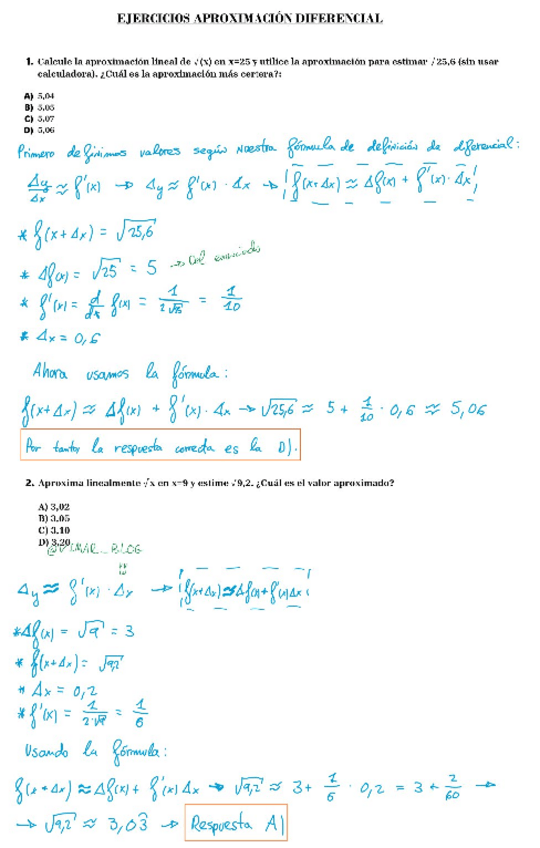 EJERCICIOS APROXIMACIÓN DIFERENCIAL
1. Calcule la aproximación lineal de √(x) en x=25 y utilice la aproximación para estimar √25,6 (sin usar
calculadora). ¿Cuál es la aproximación más certera?:
A) 5,04
B) 5,05
C) 5,07
D) 5,06
Primero definimos valores según nuestra fórmula de definición de diferencial:
Δy/Δx ≈ f'(x) → Δy ≈ f'(x) · Δx → f(x+Δx) ≈ Δf(x) + f'(x) · Δx
* f(x+Δx) = √25,6
* Δf(x) = √25 = 5 → Del enunciado
* f'(x) = d/dx f(x) = 1/2√25 = 1/10
* Δx = 0,6
Ahora usamos la fórmula:
f(x+Δx) ≈ Δf(x) + f'(x) · Δx → √25,6 ≈ 5 + 1/10 · 0,6 ≈ 5,06
Por tanto la respuesta correcta es la D).
2. Aproxima linealmente √x en x=9 y estime √9,2. ¿Cuál es el valor aproximado?
A) 3,02
B) 3,05
C) 3,10
D) 3,20
Δy ≈ f'(x) · Δx → f(x+Δx) ≈ Δf(x) + f'(x) Δx
* Δf(x) = √9 = 3
* f(x+Δx) = √9,2
* Δx = 0,2
* f'(x) = 1/2·√9 = 1/6
Usando la fórmula:
f(x+Δx) ≈ Δf(x) + f'(x) Δx → √9,2 ≈ 3 + 1/6 · 0,2 = 3 + 2/60 →
→ √9,2 ≈ 3,03 → Respuesta A)